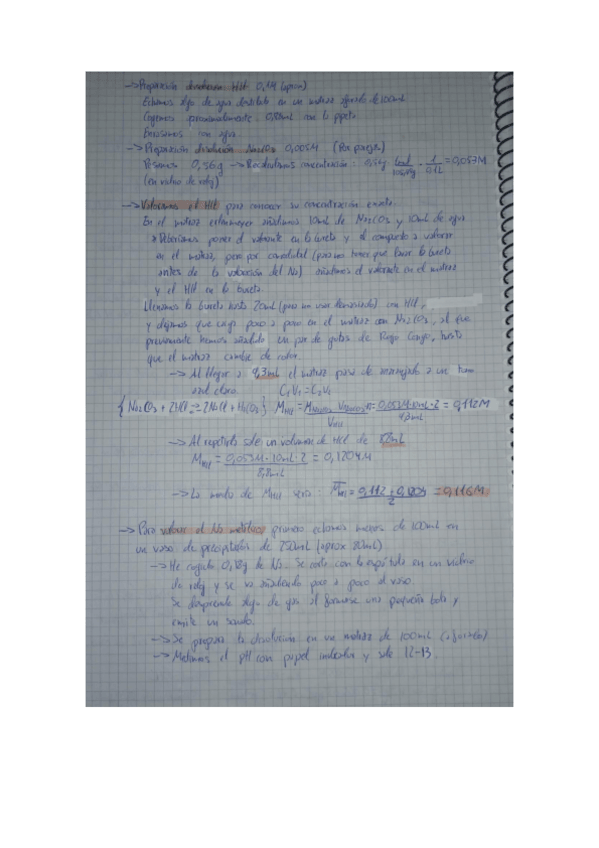 → Preparación disolución HCl 0,1M (aprox)
Echamos algo de agua destilada en un matraz aforado de 100mL
Cogemos aproximadamente 0,88mL con la pipeta
Enrasamos con agua
→ Preparación disolución Na₂CO₃ 0,005M (Por parejas)
Pesamos 0,56g → Recalculamos concentración: 0,56g · 1mol/106g · 1/0,1L = 0,053M
(en vidrio de reloj)
→ Valoramos el HCl para conocer su concentración exacta.
En el matraz erlenmeyer añadimos 10mL de Na₂CO₃ y 10mL de agua
* Deberíamos poner el valorante en la bureta y el compuesto a valorar
en el matraz, pero por comodidad (para no tener que lavar la bureta
antes de la valoración del Na) añadimos el valorante en el matraz
y el HCl en la bureta.
Llenamos la bureta hasta 20mL (para no usar demasiado) con HCl,
y dejamos que caiga poco a poco en el matraz con Na₂CO₃, al que
previamente hemos añadido un par de gotas de Rojo Congo, hasta
que el matraz cambie de color.
→ Al llegar a 9,3mL el matraz pasa de anaranjado a un tono
azul claro. C₁V₁=C₂V₂
{Na₂CO₃ + 2HCl ⇌ 2NaCl + H₂CO₃} M HCl = M Na₂CO₃ · V Na₂CO₃ · 2 / V HCl = 0,053M·10mL·2 / 9,3mL = 0,112M
→ Al repetirlo sale un volumen de HCl de 8,8mL
M HCl = 0,053M · 10mL · 2 / 8,8mL = 0,1204M
→ La media de M HCl será: M HCl = 0,112 + 0,1204 / 2 = 0,116M
→ Para valorar el Na metálico primero echamos menos de 100mL en
un vaso de precipitados de 250mL (aprox 80mL)
→ He cogido 0,18g de Na. Se corta con la espátula en un vidrio
de reloj y se va añadiendo poco a poco al vaso.
Se desprende algo de gas al formarse una pequeña bola y
emite un sonido.
→ Se prepara la disolución en un matraz de 100mL
→ Medimos el pH con papel indicador y sale 12-13.